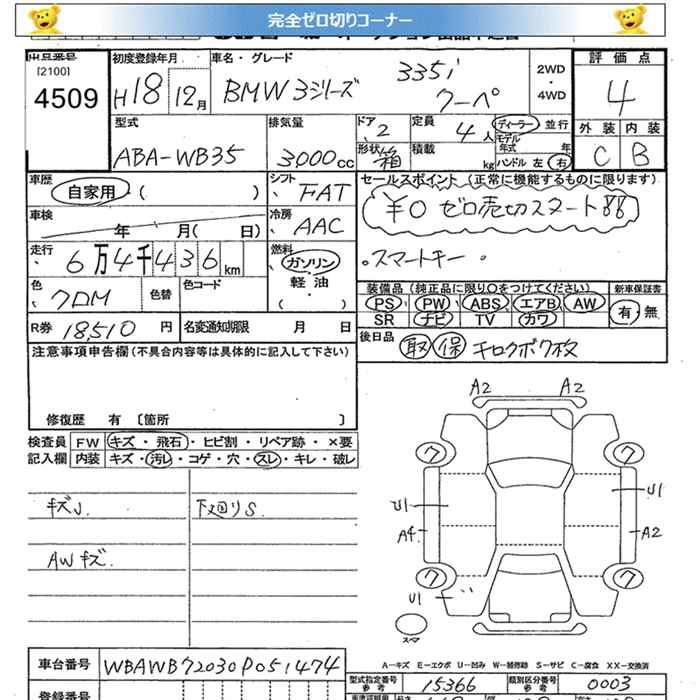 完全ゼロ切りコーナー
[2100]
4509
初度登録年月 H18 12月
車名・グレード BMW 3シリーズ 335i クーペ
2WD ・ 4WD
評価点 4
外装 内装
C B
型式 ABA-WB35
排気量 3000cc
ドア 2
形状 箱
定員 4人
積載 kg
ディーラー 並行
モデル年式 年
ハンドル 左 右
車歴 自家用 ( )
シフト FAT
車検 年 月( 日)
冷房 AAC
走行 6万4千436km
燃料 ガソリン・軽油
色 クロM 色替 色コード
R券 18,510円 名変通知期限 月 日
セールスポイント(正常に機能するものに限ります)
¥0 ゼロ売切スタート!!
。スマートキー 。
装備品(純正品に限り○をつけてください) 新車保証書
PS PW ABS エアB AW
SR ナビ TV カワ
有・無
後日品 取 保
注意事項申告欄(不具合内容等は具体的に記入して下さい)
修復歴 有 〔箇所 〕
検査員記入欄
FW キズ・飛石・ヒビ割・リペア跡・×要
内装 キズ・汚レ・コゲ・穴・スレ・キレ・破レ
キズU. 下廻りS.
AWキズ.
A2 A2
ワ ワ
U1 U1
A4 A2
ワ ワ
U1
スペア
A-キズ E-エクボ U-凹み W-補修跡 S-サビ C-腐食 XX-交換済
車台番号 WBAWB72030P051474
型式指定番号 参考 15366
類別区分番号 参考 0003
登録番号